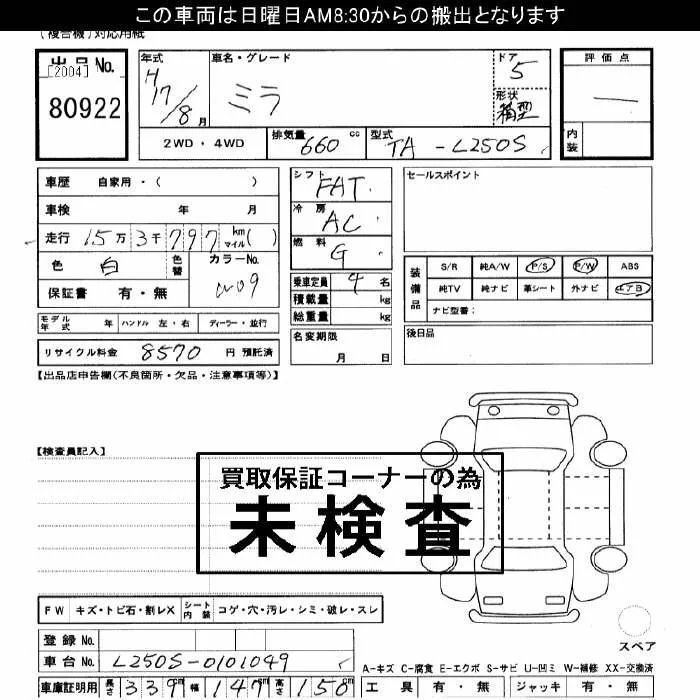 この車両は日曜日AM8:30からの搬出となります
(複合機)対応用紙
出品 No.
[2004]
80922
年式
H17/8月
車名・グレード
ミラ
ドア
5
形状
箱型
評価点
—
内装
2WD・4WD
排気量 660 cc
型式 TA-L250S
車歴 自家用・( )
車検 年 月
走行 15万3千797 km マイル( )
色 白
色替
カラーNo.
W09
保証書 有・無
シフト
FAT
冷房
AC
燃料
G
乗車定員 4 名
積載量 kg
総重量 kg
セールスポイント
装備品
S/R 純A/W P/S P/W ABS
純TV 純ナビ 革シート 外ナビ エアB
ナビ型番:
モデル年式 年 ハンドル 左・右 ディーラー・並行
リサイクル料金 8570 円 預託済
名変期限
月 日
後日品
【出品店申告欄(不良箇所・欠品・注意事項等)】
【検査員記入】
買取保証コーナーの為
未検査
FW キズ・トビ石・割レX シート内装 コゲ・穴・汚レ・シミ・破レ・スレ
スペア
登録 No.
車台 No. L250S-0101049
A-キズ C-腐食 E-エクボ S-サビ U-凹ミ W-補修 XX-交換済
車庫証明用 長さ 339cm 幅 147cm 高さ 150cm
工具 有・無 ジャッキ 有・無